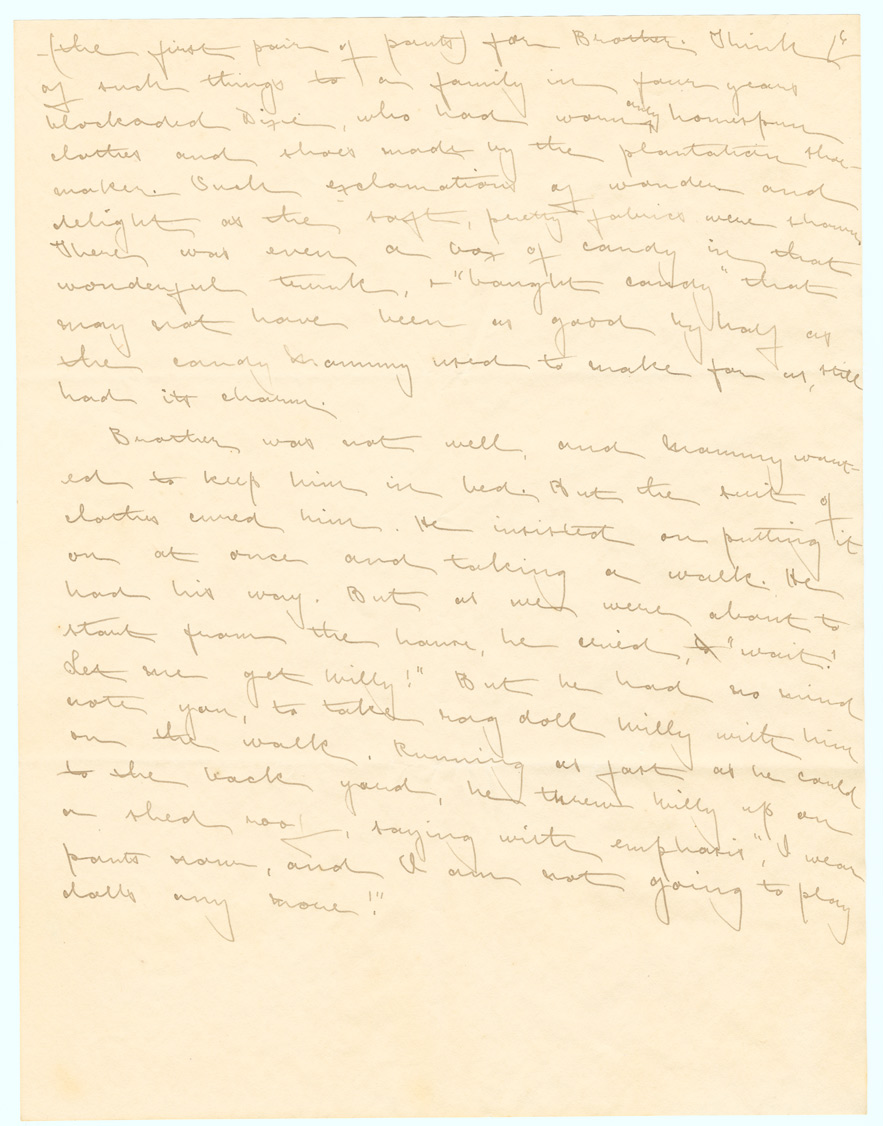 -(the first pair of pants) for Brother. Think
of such things to a family in four years
blockaded Dixie, who had worn only homespun
clothes and shoes made by the plantation shoe-
maker. Such exclamations of wonder and
delight as the soft, pretty fabrics were shown.
There was even a box of candy in that
wonderful trunk, - "bought candy" that
may not have been as good by half as
the candy Mammy used to make for us, still
had its charm.
Brother was not well, and Mammy want-
ed to keep him in bed. But the suit of
clothes cured him. He insisted on putting it
on at once and taking a walk. He
had his way. But as we were about to
start from the house, he cried, "Wait!
Let me get Milly!" But he had no mind
note you, to take rag doll Milly with him
on the walk. Running as fast as he could
to the back yard, he threw Milly up on
a shed roof, saying with emphasis, "I wear
pants now, and I am not going to play
dolls any more!"